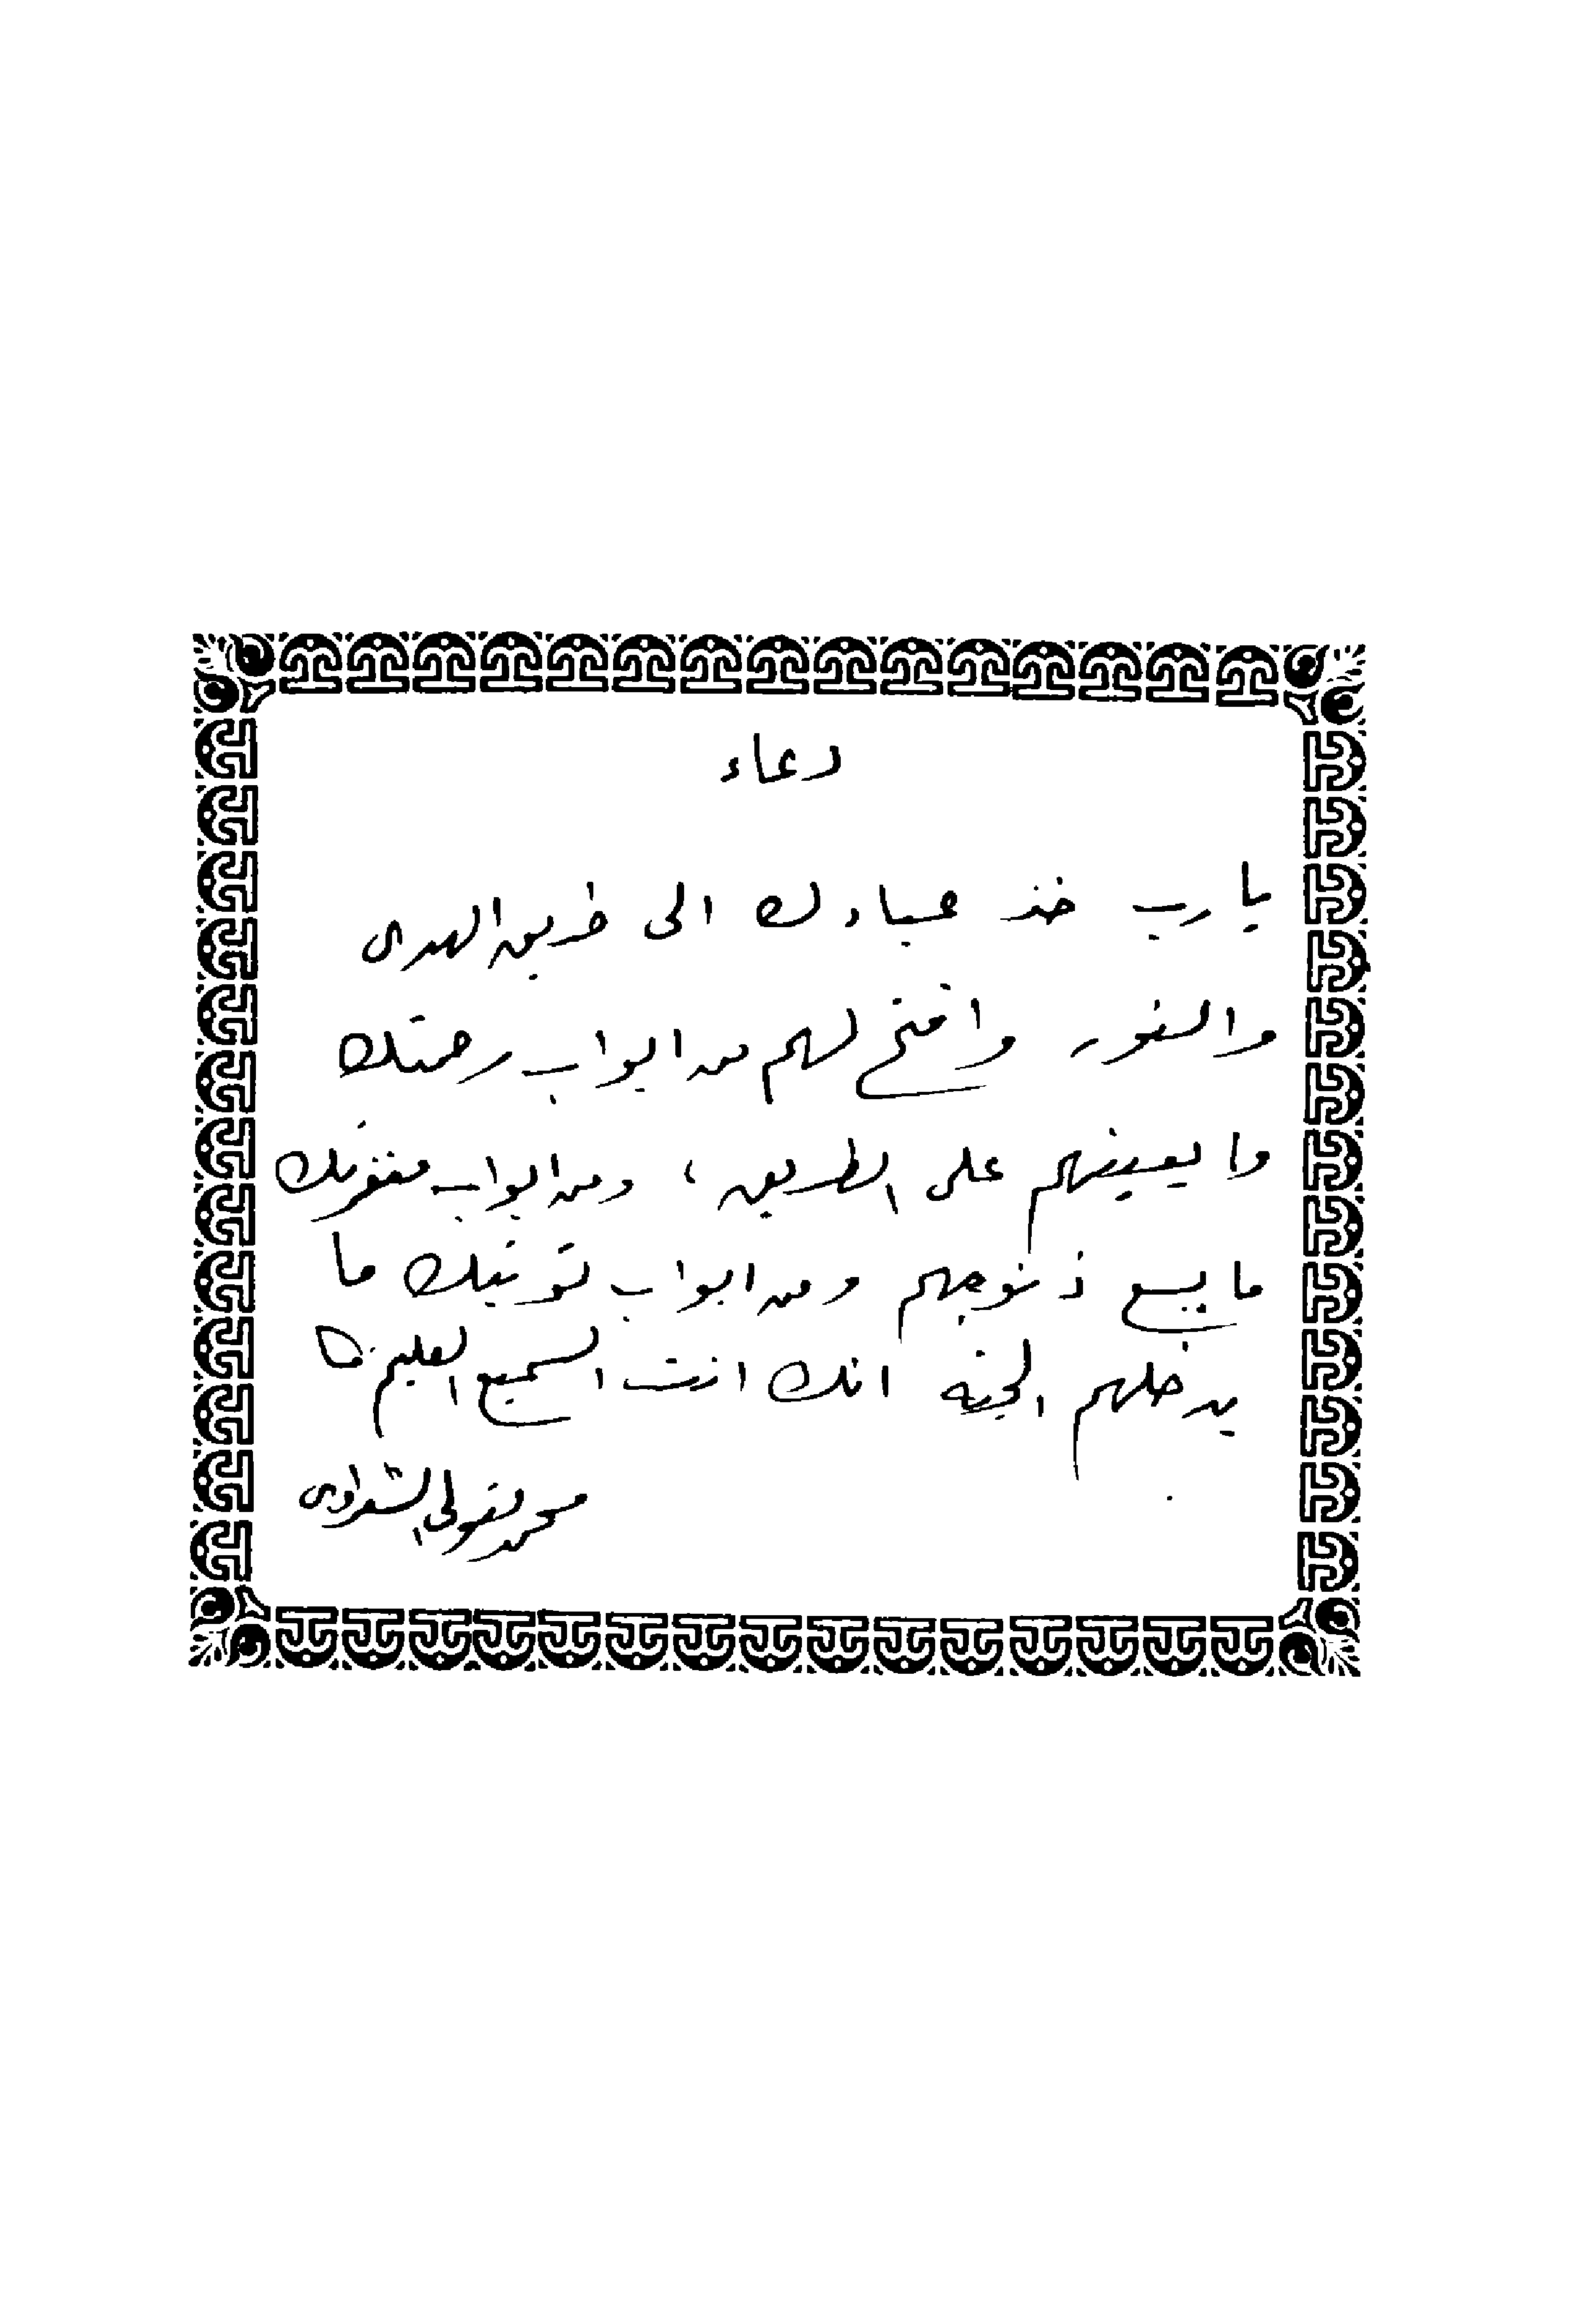 دعاء
يارب خذ عبادك الى طريق الهدى
والنور وافتح لهم من ابواب رحمتك
ما يعينهم على الطريق ، ومن ابواب مغفرتك
ما يسع ذنوبهم ومن ابواب توفيقك ما
يدخلهم الجنة انك انت السميع العليم
محمد متولي الشعراوى